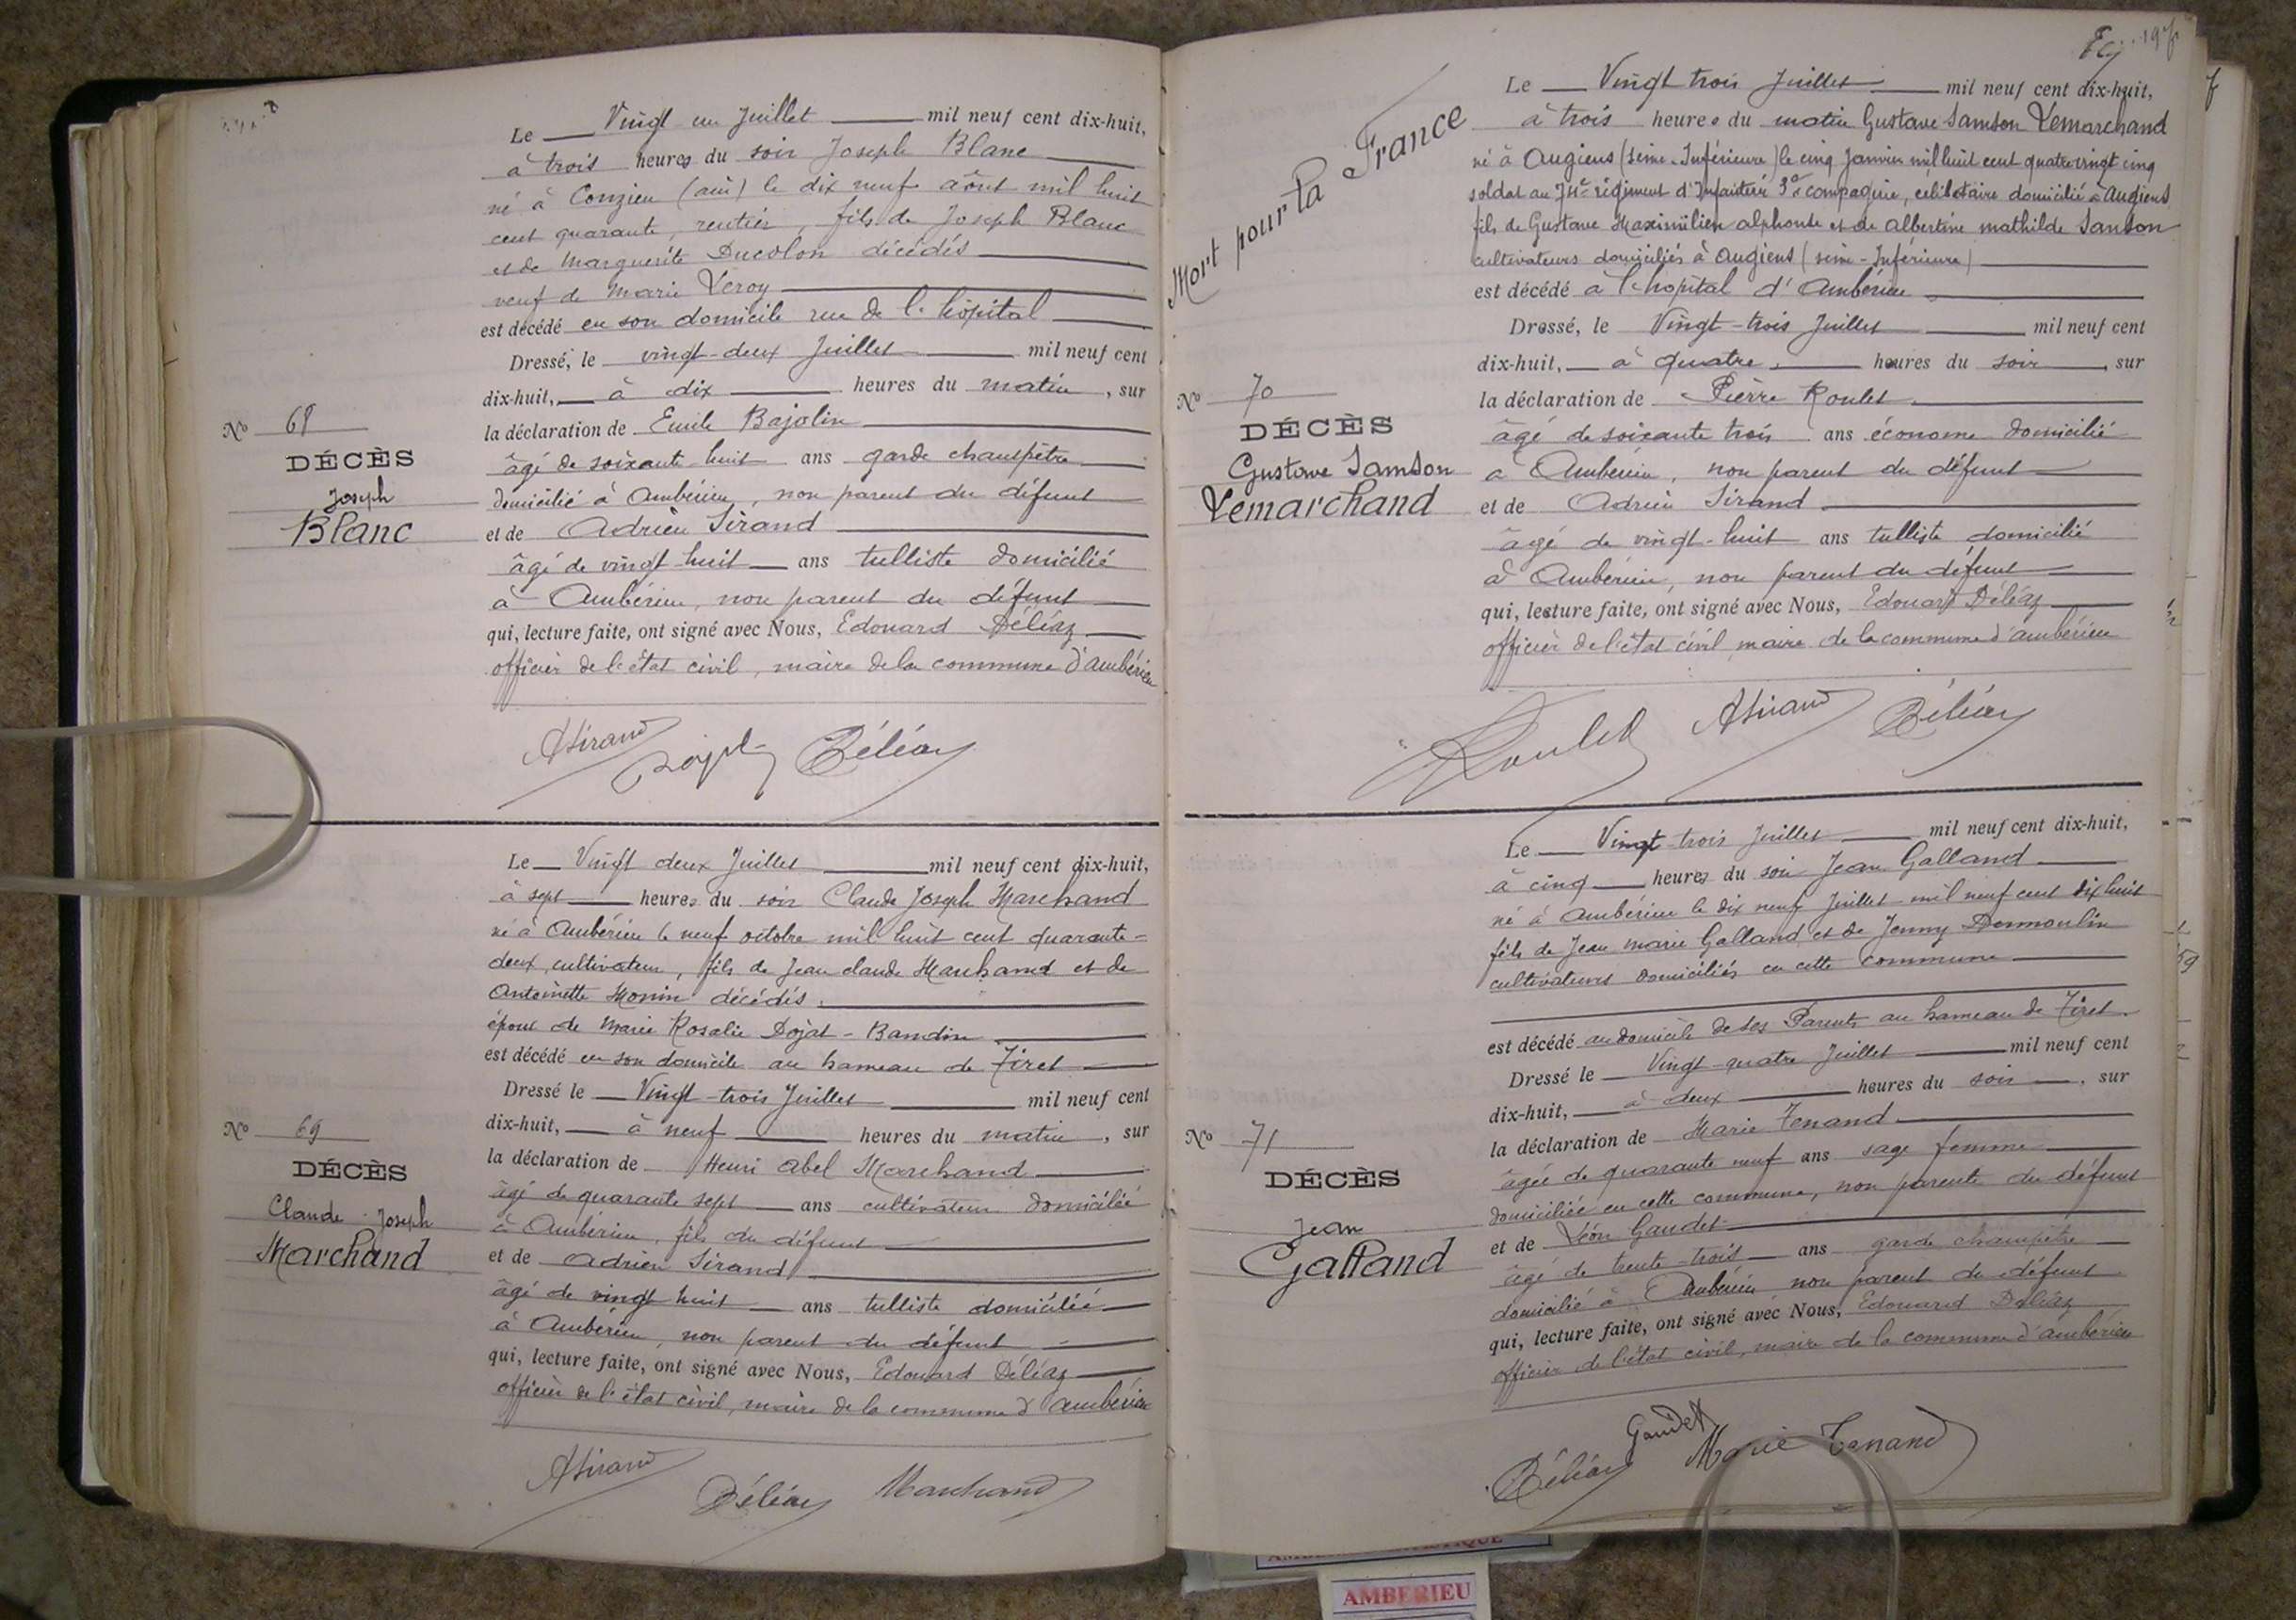 Le Vingt un Juillet mil neuf cent dix-huit,
à trois heures du soir Joseph Blanc
né à Conzieu (ain) le dix neuf août mil huit
cent quarante, rentier, fils de Joseph Blanc
et de Marguerite Ducolon décédés
veuf de Marie Leroy
est décédé en son domicile rue de l'hôpital
Dressé, le vingt-deux Juillet mil neuf cent
dix-huit, à dix heures du matin, sur
No 68
la déclaration de Emile Bajolin
DÉCÈS
âgé de soixante-huit ans garde champêtre
Joseph
domicilié à Ambérieu, non parent du défunt
Blanc
et de Adrien Sirand
âgé de vingt-huit ans tulliste domicilié
à Ambérieu, non parent du défunt
qui, lecture faite, ont signé avec Nous, Edouard Déléaz
officier de l'état civil, maire de la commune d'ambérieu
ASirand Déléaz
Le Vingt deux Juillet mil neuf cent dix-huit,
à sept heures du soir Claude Joseph Marchand
né à Ambérieu le neuf octobre mil huit cent quarante-
deux, cultivateur, fils de Jean claude Marchand et de
Antoinette Monin décédés.
époux de Marie Rosalie Dojat-Bandin
est décédé en son domicile au hameau de Tiret
Dressé le Vingt-trois Juillet mil neuf cent
No 69
dix-huit, à neuf heures du matin, sur
DÉCÈS
la déclaration de Henri abel Marchand
Claude Joseph
âgé de quarante sept ans cultivateur domicilié
Marchand
à Ambérieu, fils du défunt
et de Adrien Sirand
âgé de vingt huit ans tulliste domicilié
à Ambérieu, non parent du défunt
qui, lecture faite, ont signé avec Nous, Edouard Déléaz
officier de l'état civil, maire de la commune d'ambérieu
ASirand Déléaz Marchand
Mort pour la France
Le Vingt trois Juillet mil neuf cent dix-huit,
à trois heures du matin Gustave Samson Lemarchand
né à Augiens (seine-Inférieure) le cinq Janvier mil huit cent quatre vingt cinq
soldat au 74e régiment d'Infanterie 3e compagnie, célibataire domicilié à Augiens
fils de Gustave Maximilien alphonse et de albertine mathilde Samson
cultivateurs domiciliés à Augiens (seine-Inférieure)
est décédé à l'hôpital d'Ambérieu
Dressé, le Vingt-trois Juillet mil neuf cent
dix-huit, à quatre heures du soir, sur
No 70
la déclaration de Pierre Roulet
DÉCÈS
âgé de soixante trois ans économe domicilié
Gustave Samson
à Ambérieu, non parent du défunt
Lemarchand
et de Adrien Sirand
âgé de vingt-huit ans tulliste domicilié
à Ambérieu, non parent du défunt
qui, lecture faite, ont signé avec Nous, Edouard Déléaz
officier de l'état civil maire de la commune d'ambérieu
Roulet ASirand Déléaz
Le Vingt-trois Juillet mil neuf cent dix-huit,
à cinq heures du soir Jean Galland
né à Ambérieu le dix neuf Juillet mil neuf cent dix huit
fils de Jean marie Galland et de Jenny Desmoulin
cultivateurs domiciliés en cette commune
est décédé au domicile de ses Parents au hameau de Tiret
Dressé le Vingt-quatre Juillet mil neuf cent
dix-huit, à deux heures du soir, sur
No 71
la déclaration de Marie Tenand
DÉCÈS
âgée de quarante neuf ans sage femme
Jean
domiciliée en cette commune, non parente du défunt
Galland
et de Léon Gaudet
âgé de trente-trois ans garde champêtre
domicilié à Ambérieu non parent du défunt
qui, lecture faite, ont signé avec Nous, Edouard Déléaz
officier de l'état civil, maire de la commune d'ambérieu
Gaudet
Déléaz Marie Tenand
AMBERIEU